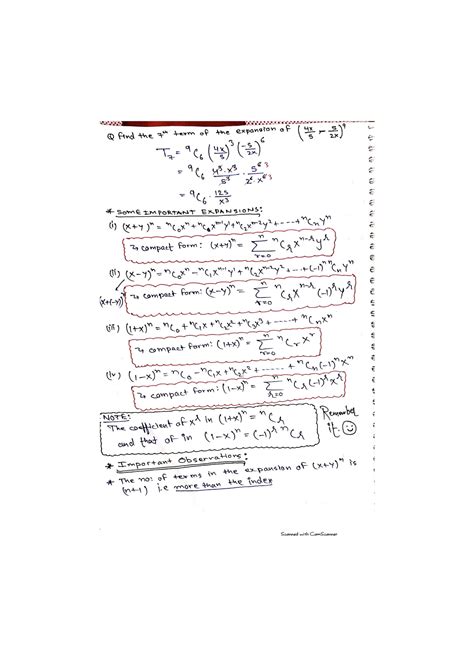 Q Find the 7th term of the expansion of (4x/5 - 5/2x)^9
T₇ = ⁹C₆ (4x/5)³ (-5/2x)⁶
= ⁹C₆ 4³·x³/5³ · 5⁶ ³/2⁶ x⁶ ³
= ⁹C₆ · 125/x³
* SOME IMPORTANT EXPANSIONS:
(i) (x+y)ⁿ = ⁿC₀xⁿ + ⁿC₁xⁿ⁻¹y¹ + ⁿC₂xⁿ⁻²y² + ----- + ⁿCₙyⁿ
↳ compact form: (x+y)ⁿ = Σ_{r=0}^{n} ⁿCᵣ xⁿ⁻ʳ yʳ
(ii) (x-y)ⁿ = ⁿC₀xⁿ - ⁿC₁xⁿ⁻¹y¹ + ⁿC₂xⁿ⁻²y² + ... + (-1)ⁿ ⁿCₙyⁿ
(x+(-y))ⁿ
↳ compact form: (x-y)ⁿ = Σ_{r=0}^{n} ⁿCᵣ xⁿ⁻ʳ (-1)ʳ yʳ
(iii) (1+x)ⁿ = ⁿC₀ + ⁿC₁x + ⁿC₂x² + ⁿC₃x³ + ----- + ⁿCₙxⁿ
↳ compact form: (1+x)ⁿ = Σ_{r=0}^{n} ⁿCᵣ xʳ
(iv) (1-x)ⁿ = ⁿC₀ - ⁿC₁x + ⁿC₂x² - ----- + ⁿCₙ(-1)ⁿxⁿ
↳ compact form: (1-x)ⁿ = Σ_{r=0}^{n} ⁿCᵣ (-1)ʳ xʳ
NOTE:
The coefficient of xʳ in (1+x)ⁿ = ⁿCᵣ
and that of in (1-x)ⁿ = (-1)ʳ ⁿCᵣ
Remember
it.
* Important Observations:
* The no: of terms in the expansion of (x+y)ⁿ is
(n+1) i.e more than the index
Scanned with CamScanner